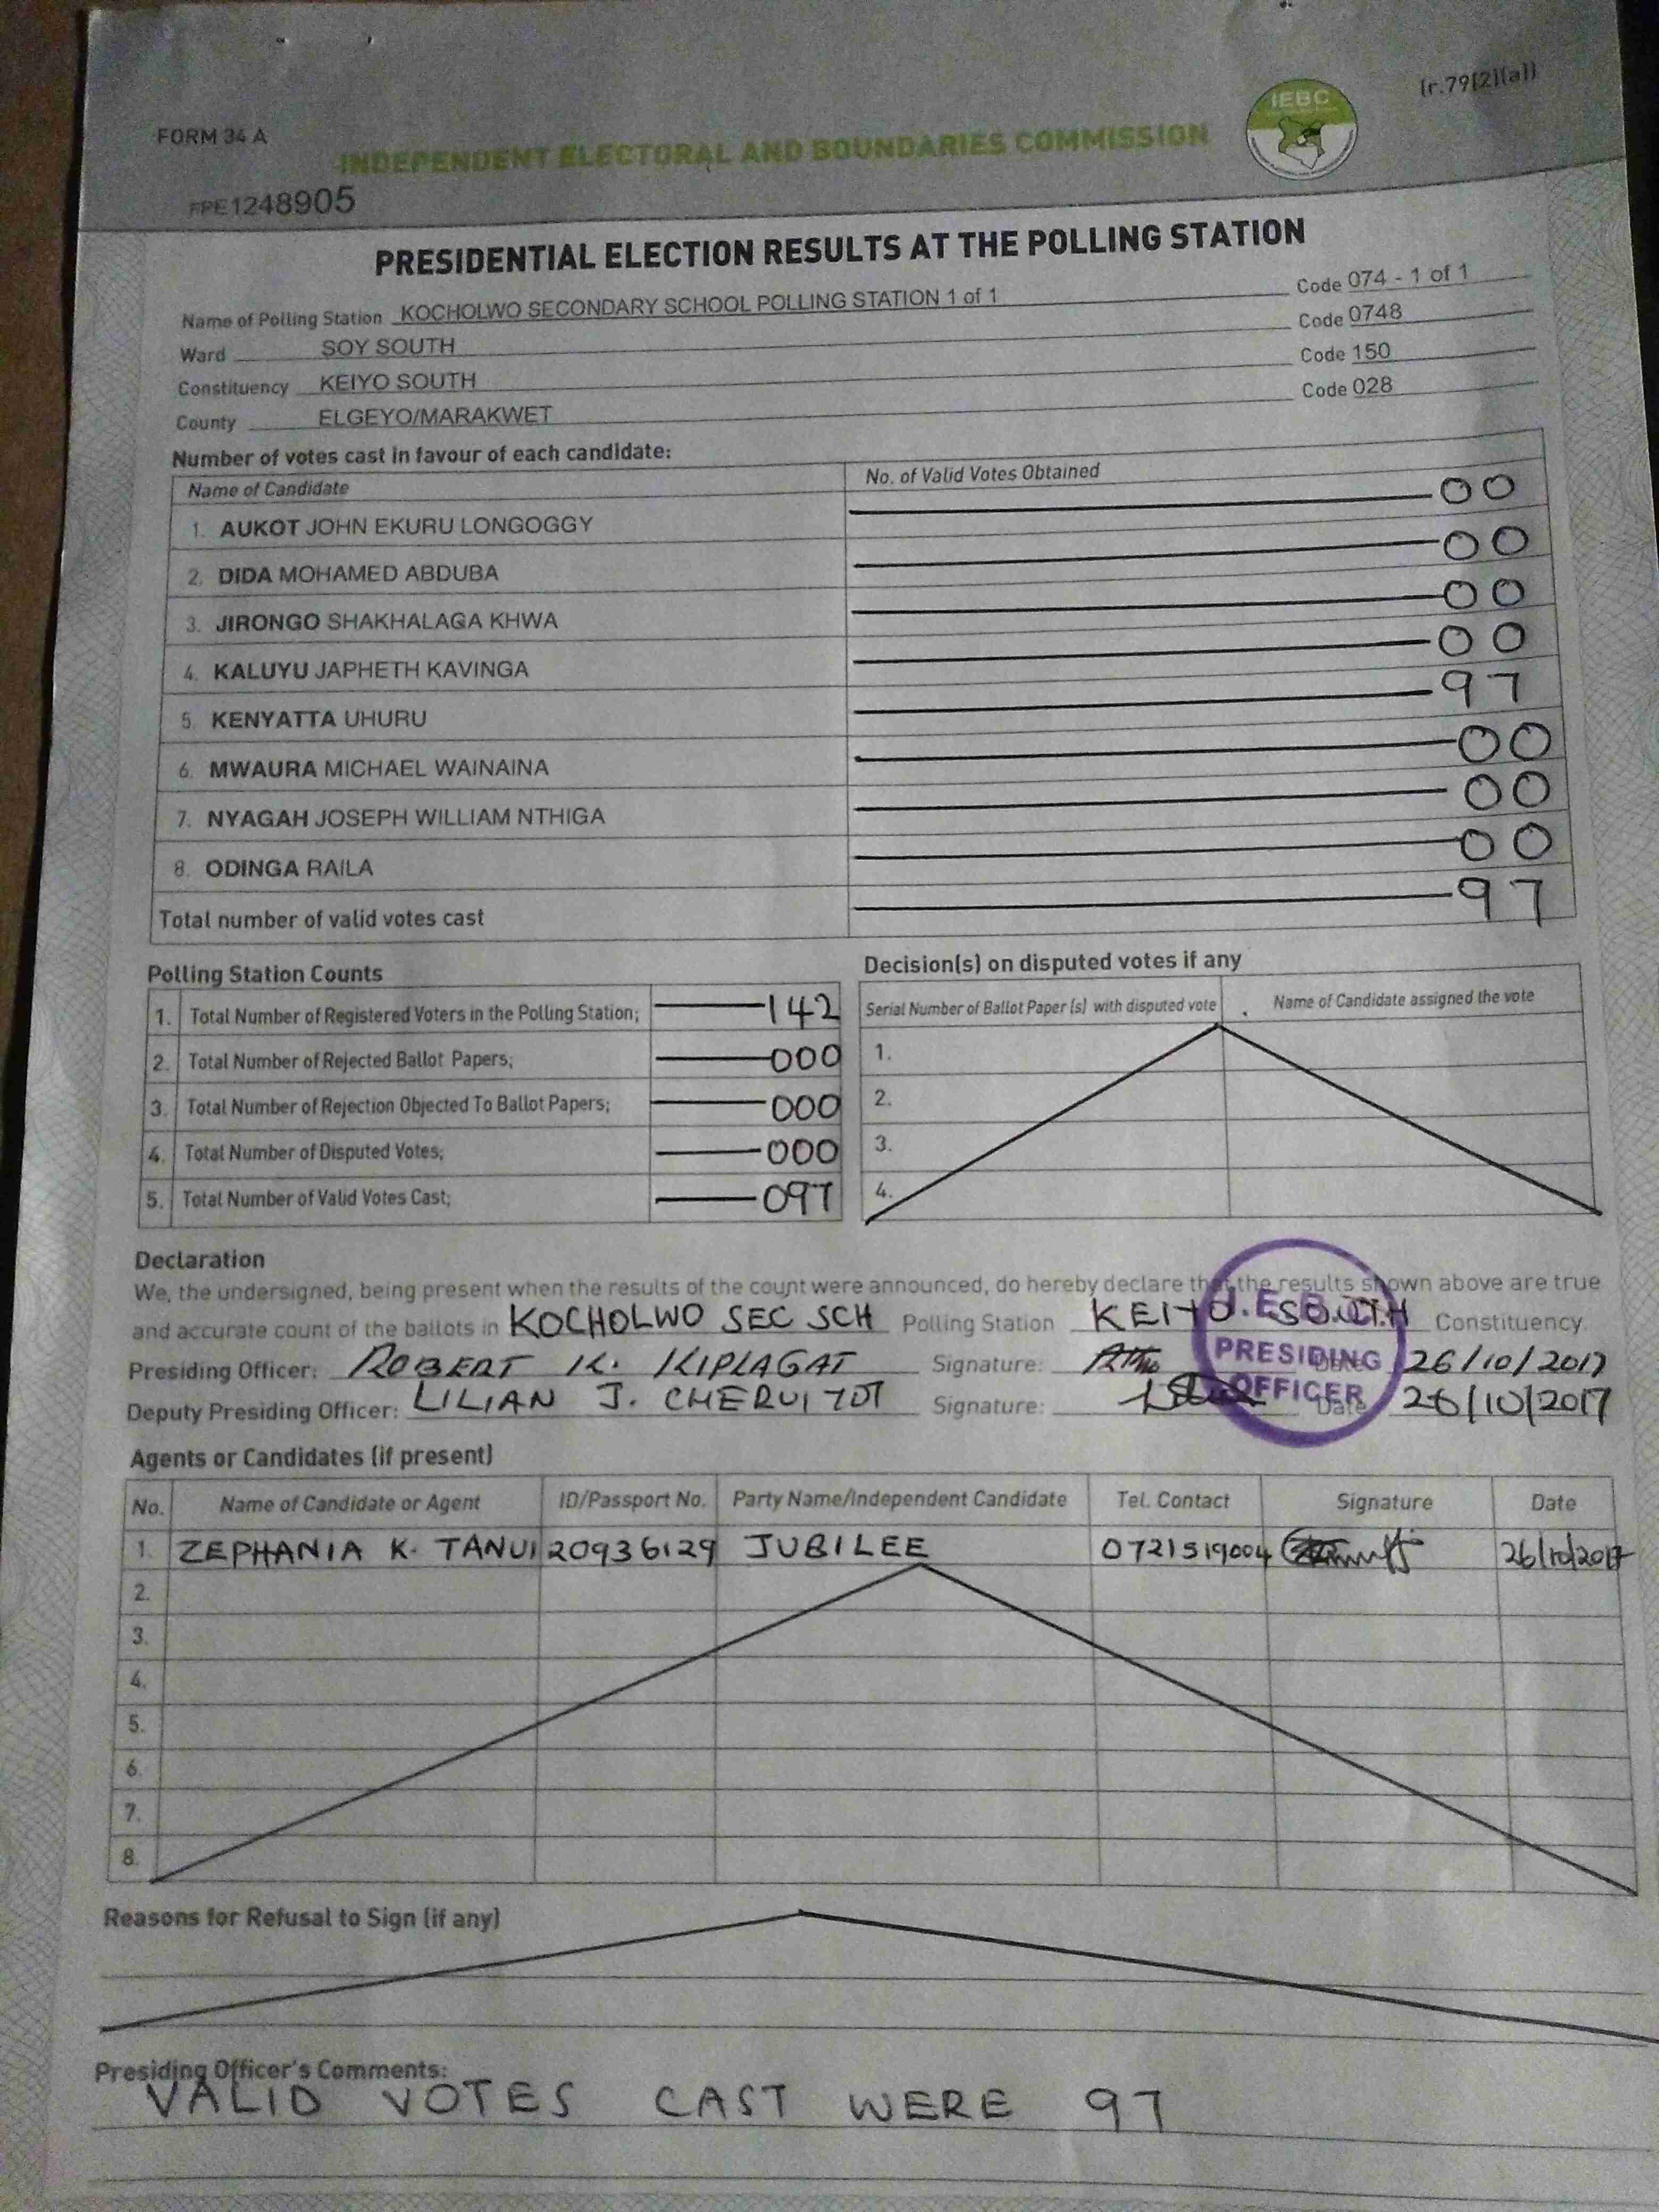 (r.79(2)(a))
FORM 34 A
INDEPENDENT ELECTORAL AND BOUNDARIES COMMISSION
IEBC
FPE1248905
PRESIDENTIAL ELECTION RESULTS AT THE POLLING STATION
Name of Polling Station KOCHOLWO SECONDARY SCHOOL POLLING STATION 1 of 1 Code 074 - 1 of 1
Ward SOY SOUTH Code 0748
Constituency KEIYO SOUTH Code 150
County ELGEYO/MARAKWET Code 028
Number of votes cast in favour of each candidate:
Name of Candidate No. of Valid Votes Obtained
1. AUKOT JOHN EKURU LONGOGGY 00
2. DIDA MOHAMED ABDUBA 00
3. JIRONGO SHAKHALAGA KHWA 00
4. KALUYU JAPHETH KAVINGA 00
5. KENYATTA UHURU 97
6. MWAURA MICHAEL WAINAINA 00
7. NYAGAH JOSEPH WILLIAM NTHIGA 00
8. ODINGA RAILA 00
Total number of valid votes cast 97
Polling Station Counts
1. Total Number of Registered Voters in the Polling Station; 142
2. Total Number of Rejected Ballot Papers; 000
3. Total Number of Rejection Objected To Ballot Papers; 000
4. Total Number of Disputed Votes; 000
5. Total Number of Valid Votes Cast; 097
Decision(s) on disputed votes if any
Serial Number of Ballot Paper (s) with disputed vote Name of Candidate assigned the vote
1.
2.
3.
4.
Declaration
We, the undersigned, being present when the results of the count were announced, do hereby declare that the results shown above are true
and accurate count of the ballots in KOCHOLWO SEC SCH Polling Station KEIYO SOUTH Constituency.
Presiding Officer: ROBERT K. KIPLAGAT Signature: Date 26/10/2017
Deputy Presiding Officer: LILIAN J. CHERUIYOT Signature: Date 26/10/2017
I.E.B.C.
PRESIDING
OFFICER
Agents or Candidates (if present)
No. Name of Candidate or Agent ID/Passport No. Party Name/Independent Candidate Tel. Contact Signature Date
1. ZEPHANIA K. TANUI 20936129 JUBILEE 0721519004 26/10/2017
2.
3.
4.
5.
6.
7.
8.
Reasons for Refusal to Sign (if any)
Presiding Officer's Comments:
VALID VOTES CAST WERE 97